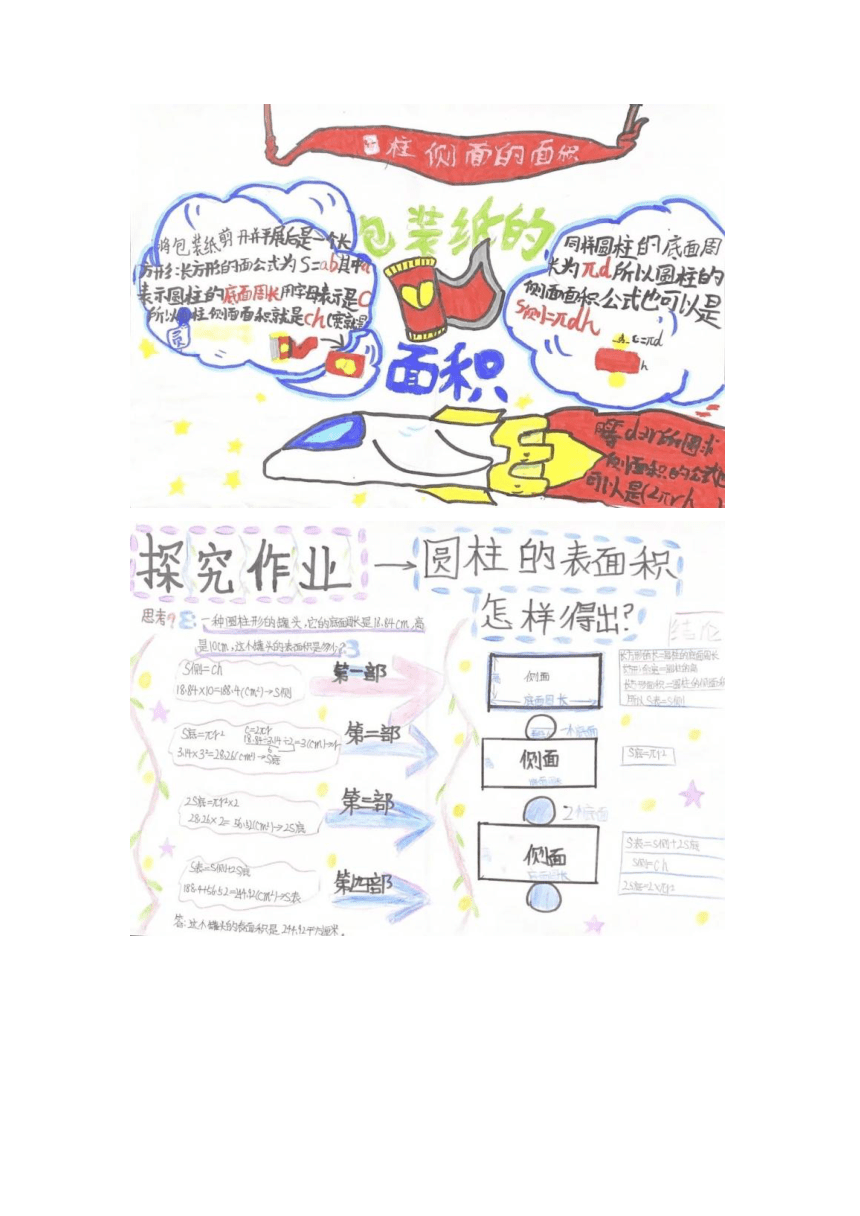 柱侧面的面积
包装纸的
面积
将包装纸剪开并平展后是一个长
方形:长方形的面公式为S=ab其中a
表示圆柱的底面周长用字母表示是C
所以圆柱侧面面积就是ch
同样圆柱的底面周
长为πd所以圆柱的
侧面面积公式也可以是
S侧=πdh
c=πd
h
侧面积的公式也
可以是(2πrh
探究作业→圆柱的表面积
怎样得出?
思考
一种圆柱形的罐头,它的底面周长是18.84cm,高
是10cm,这个罐头的表面积是多少?
S侧=ch
18.84×10=188.4(cm²)→S侧
第一部
S底=πr² C=2πr
18.84÷3.14÷2=3(cm)→r
3.14×3²=28.26(cm²)→S底
第二部
2S底=πr²×2
28.26×2=56.52(cm²)→2S底
第三部
S表=S侧+2S底
188.4+56.52=244.92(cm²)→S表
第四部
答:这个罐头的表面积是244.92平方厘米。
结论
侧面
底面周长
长方形的长=圆柱的底面周长
长方形的宽=圆柱的高
长方形面积=圆柱的侧面积
侧面
S底=πr²
2个底面
侧面
底面周长
S表=S侧+2S底
S侧=ch
2S底=2×πr²